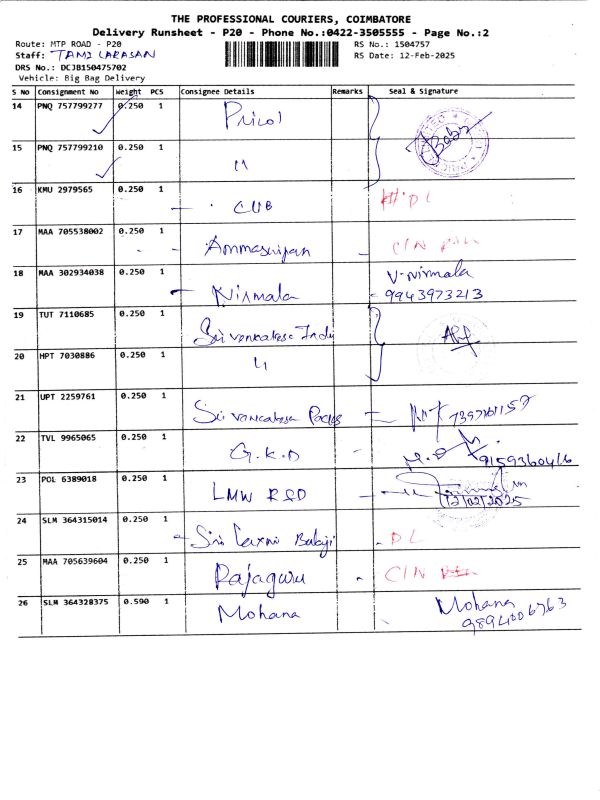 THE PROFESSIONAL COURIERS, COIMBATORE
Delivery Runsheet - P20 - Phone No.:0422-3505555 - Page No.:2
Route: MTP ROAD - P20
RS No.: 1504757
Staff: TAMILARASAN
RS Date: 12-Feb-2025
DRS No.: DCJB150475702
Vehicle: Big Bag Delivery
S No Consignment No Weight PCS Consignee Details Remarks Seal & Signature
14 PNQ 757799277 0.250 1 Pricol
15 PNQ 757799210 0.250 1 "
16 KMU 2979565 0.250 1 CUB DL
17 MAA 705538002 0.250 1 C/N
18 MAA 302934038 0.250 1 Nirmala V-Nirmala
9943973213
19 TUT 7110685 0.250 1 Sri venkatesa
20 HPT 7030886 0.250 1 "
21 UPT 2259761 0.250 1 Sri
22 TVL 9965065 0.250 1 G.K.D
23 POL 6389018 0.250 1 LMW R&D 12/02/2025
24 SLM 364315014 0.250 1 Sri Laxmi Balaji DL
25 MAA 705639604 0.250 1 Rajaguru C/N
26 SLM 364328375 0.590 1 Mohana Mohana